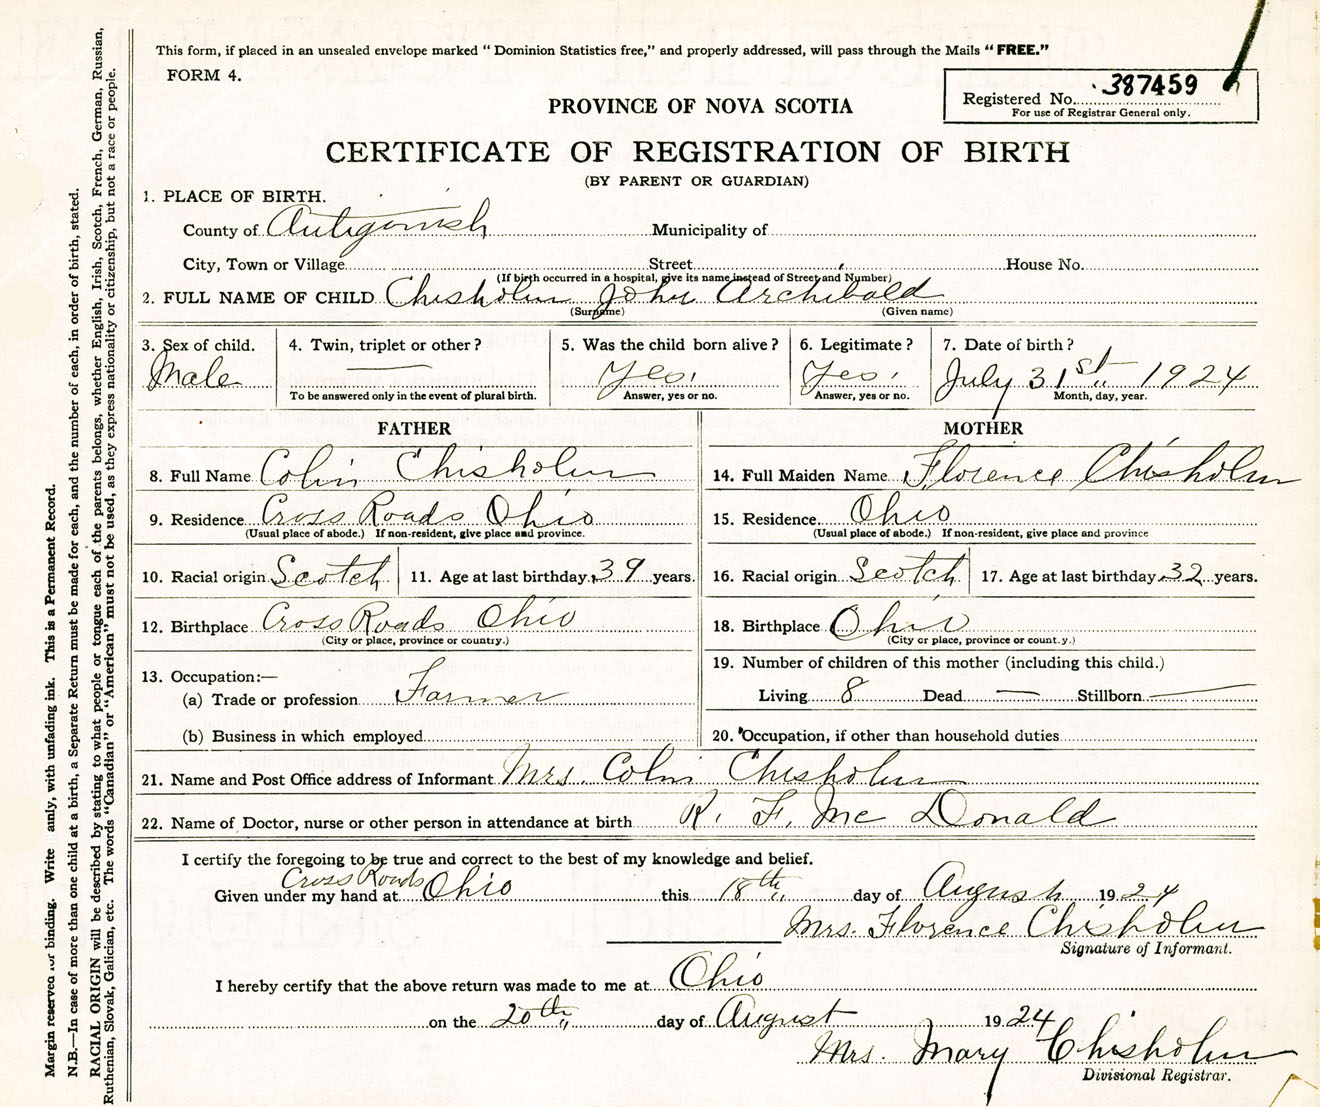 This form, if placed in an unsealed envelope marked “ Dominion Statistics free,” and properly addressed, will pass through the Mails “ FREE.”
FORM 4.
Registered No. 387459
For use of Registrar General only.
PROVINCE OF NOVA SCOTIA
CERTIFICATE OF REGISTRATION OF BIRTH
(BY PARENT OR GUARDIAN)
1. PLACE OF BIRTH.
County of Antigonish Municipality of
City, Town or Village Street House No.
(If birth occurred in a hospital, give its name instead of Street and Number)
2. FULL NAME OF CHILD Chisholm John Archibald
(Surname) (Given name)
3. Sex of child. 4. Twin, triplet or other ? 5. Was the child born alive ? 6. Legitimate ? 7. Date of birth ?
Male — Yes. Yes. July 31st 1924
To be answered only in the event of plural birth. Answer, yes or no. Answer, yes or no. Month, day, year.
FATHER MOTHER
8. Full Name Colin Chisholm 14. Full Maiden Name Florence Chisholm
9. Residence Cross Roads Ohio 15. Residence. Ohio
(Usual place of abode.) If non-resident, give place and province. (Usual place of abode.) If non-resident, give place and province
10. Racial origin Scotch 11. Age at last birthday. 39 years. 16. Racial origin Scotch 17. Age at last birthday. 32 years.
12. Birthplace Cross Roads Ohio 18. Birthplace Ohio
(City or place, province or country.) (City or place, province or count.y.)
13. Occupation:— 19. Number of children of this mother (including this child.)
(a) Trade or profession Farmer Living 8 Dead — Stillborn —
(b) Business in which employed 20. Occupation, if other than household duties
21. Name and Post Office address of Informant Mrs. Colin Chisholm
22. Name of Doctor, nurse or other person in attendance at birth R. F. Mc Donald
I certify the foregoing to be true and correct to the best of my knowledge and belief.
Given under my hand at Cross Roads Ohio this 18th day of August 1924
Mrs. Florence Chisholm
Signature of Informant.
I hereby certify that the above return was made to me at Ohio
on the 20th day of August 1924
Mrs. Mary Chisholm
Divisional Registrar.
Margin reserved for binding. Write amly, with unfading ink. This is a Permanent Record.
N.B.—In case of more than one child at a birth, a Separate Return must be made for each, and the number of each, in order of birth, stated.
RACIAL ORIGIN will be described by stating to what people or tongue each of the parents belongs, whether English, Irish, Scotch, French, German, Russian,
Ruthenian, Slovak, Galician, etc. The words “Canadian” or “American” must not be used, as they express nationality or citizenship, but not a race or people.